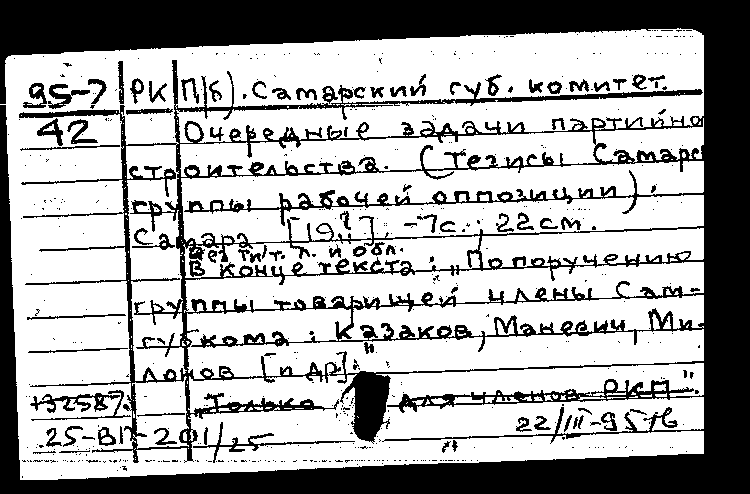 95-7 РКП(б). Самарский губ. комитет.
42 Очередные задачи партийно
строительства. (Тезисы Самарс
группы рабочей оппозиции).
Самара, [19..?]. -7с.; 22см.
Без тит. л. и обл.
В конце текста: „По поручению
группы товарищей члены Сам-
губкома: Казаков, Маневич, Ми-
лонов [и др]."
+32587. „Только для членов РКП".
25-ВП-201/25 22/III-95